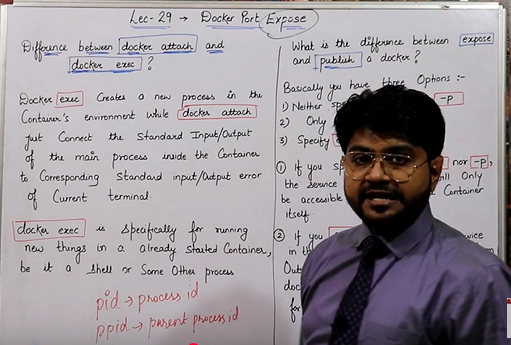 Lec-29 → Docker Port Expose
Difference between docker attach and
docker exec ?
Docker exec Creates a new process in the
Container's environment while docker attach
just Connect the Standard Input/Output
of the main process inside the Container
to Corresponding Standard input/output error
of Current terminal
docker exec is Specifically for running
new things in a already Started Container,
be it a Shell or Some Other process
pid → process id
ppid → parent process id
What is the difference between expose
and publish a docker ?
Basically you have three Options :-
1) Neither -p
2) Only
3) Specify
① If you nor -p,
the service Only
be accessible Container
itself
② If you
in the
Out
doc
for